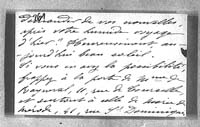 demander de vos nouvelles
après votre humide voyage
d'hier. Heureusement au-
jourd'hui beau soleil!
Si vous avez la possibilité
frappez à la porte de Mme de
11, rue de
et surtout à celle de Marie de
41, rue St Dominique